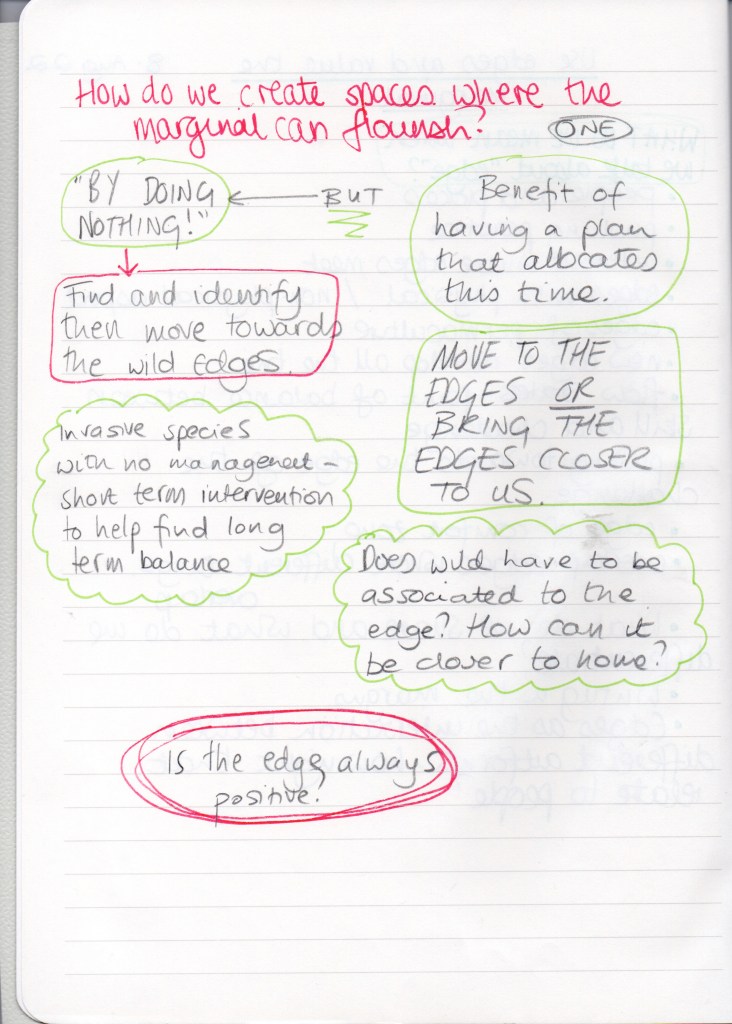 How do we create spaces where the
marginal can flourish?
ONE
"BY DOING
NOTHING!"
BUT
Benefit of
having a plan
that allocates
this time.
Find and identify
then move towards
the wild edges.
MOVE TO THE
EDGES OR
BRING THE
EDGES CLOSER
TO US.
Invasive species
with no management -
short term intervention
to help find long
term balance
Does wild have to be
associated to the
edge? How can it
be closer to home?
Is the edge always
positive?